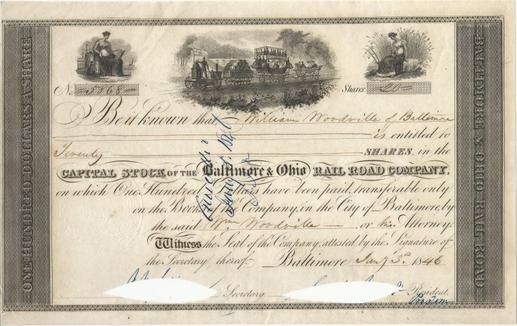 ONE HUNDRED DOLLARS A SHARE
BALTIMORE & OHIO RAIL ROAD
No. 5868 Shares 20
Be it known that William Woodville of Baltimore
is entitled to
Twenty SHARES, in the
CAPITAL STOCK OF THE Baltimore & Ohio RAIL ROAD COMPANY,
on which One Hundred have been paid, transferable only
on the Books Company, in the City of Baltimore, by
the said Wm Woodville or his Attorney.
Witness the Seal of the Company, attested by the Signature of
the Secretary thereof. Baltimore Jany 3d 1846
Secretary President.